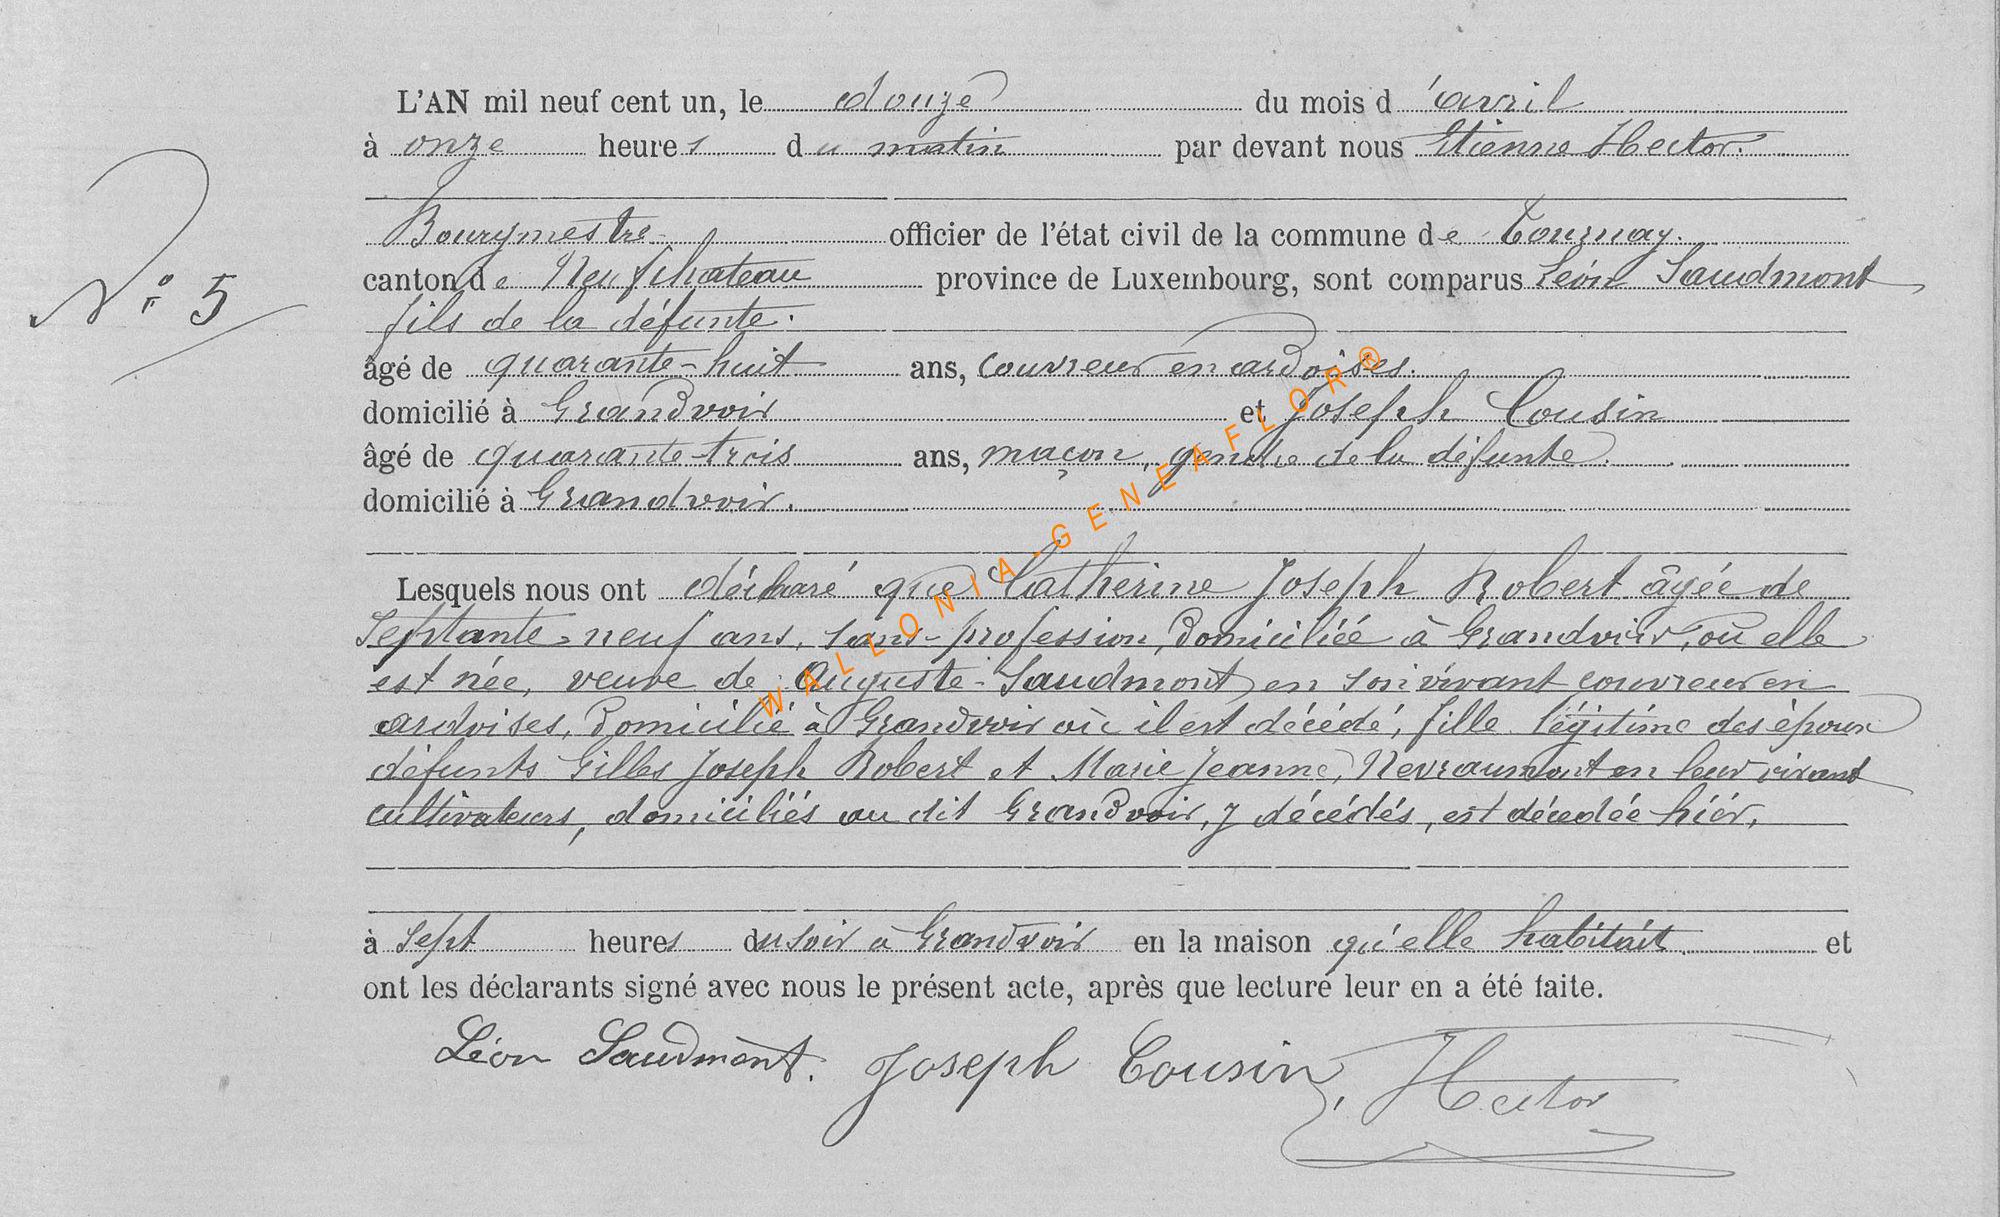 L'AN mil neuf cent un, le douze du mois d'avril
à onze heures du matin par devant nous Etienne Hector.
Bourgmestre officier de l'état civil de la commune de Tournay.
canton de Neufchateau province de Luxembourg, sont comparus Léon Saudmont
N° 5
fils de la défunte.
âgé de quarante-huit ans, couvreur en ardoises.
domicilié à Grandvoir et Joseph Cousin
âgé de quarante-trois ans, maçon, gendre de la défunte.
domicilié à Grandvoir.
Lesquels nous ont déclaré que Catherine Joseph Robert âgée de
septante-neuf ans, sans-profession, domiciliée à Grandvoir, où elle
est née, veuve de Auguste Saudmont en son vivant couvreur en
ardoises, domicilié à Grandvoir où il est décédé, fille légitime des époux
défunts Gilles Joseph Robert et Marie Jeanne Nevraumont en leur vivant
cultivateurs, domiciliés au dit Grandvoir, y décédés, est décédée hier,
à sept heures du soir à Grandvoir en la maison qu'elle habitait et
ont les déclarants signé avec nous le présent acte, après que lecture leur en a été faite.
Léon Saudmont. Joseph Cousin, Hector
WALLONIA-GENEAFLOR®